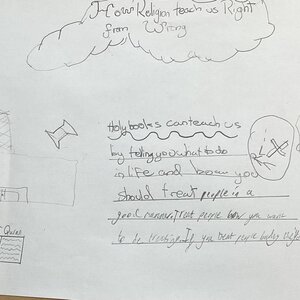 How Religion teach us Right
from Wrong
Holy books can teach us
by telling you what to do
in life and how you
should treat people in a
good manner. Treat people how you want
to be treating. If you treat people badly
Quran